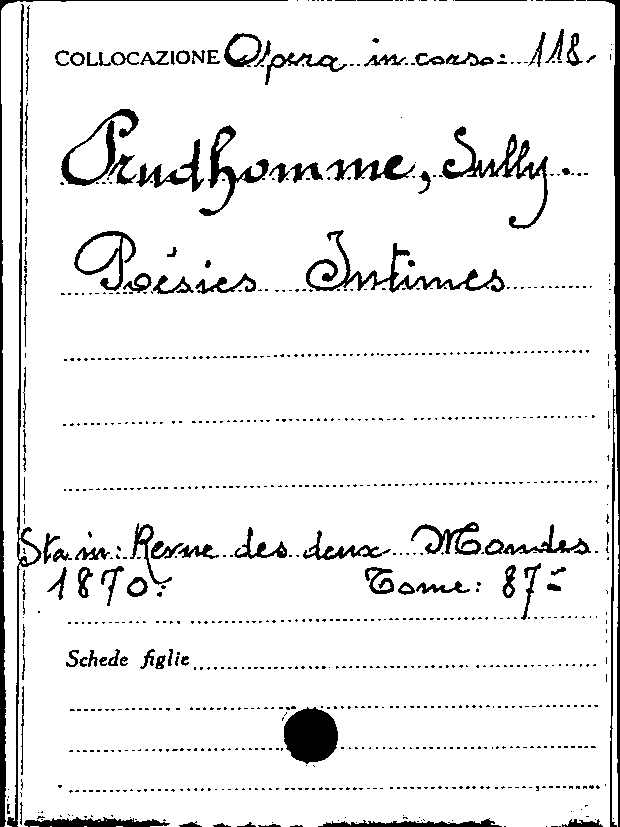 COLLOCAZIONE Opera in corso: 118.
Prudhomme, Sully.
Poésies Intimes
Sta in: Revue des deux Mondes
1870. Tome: 87=
Schede figlie